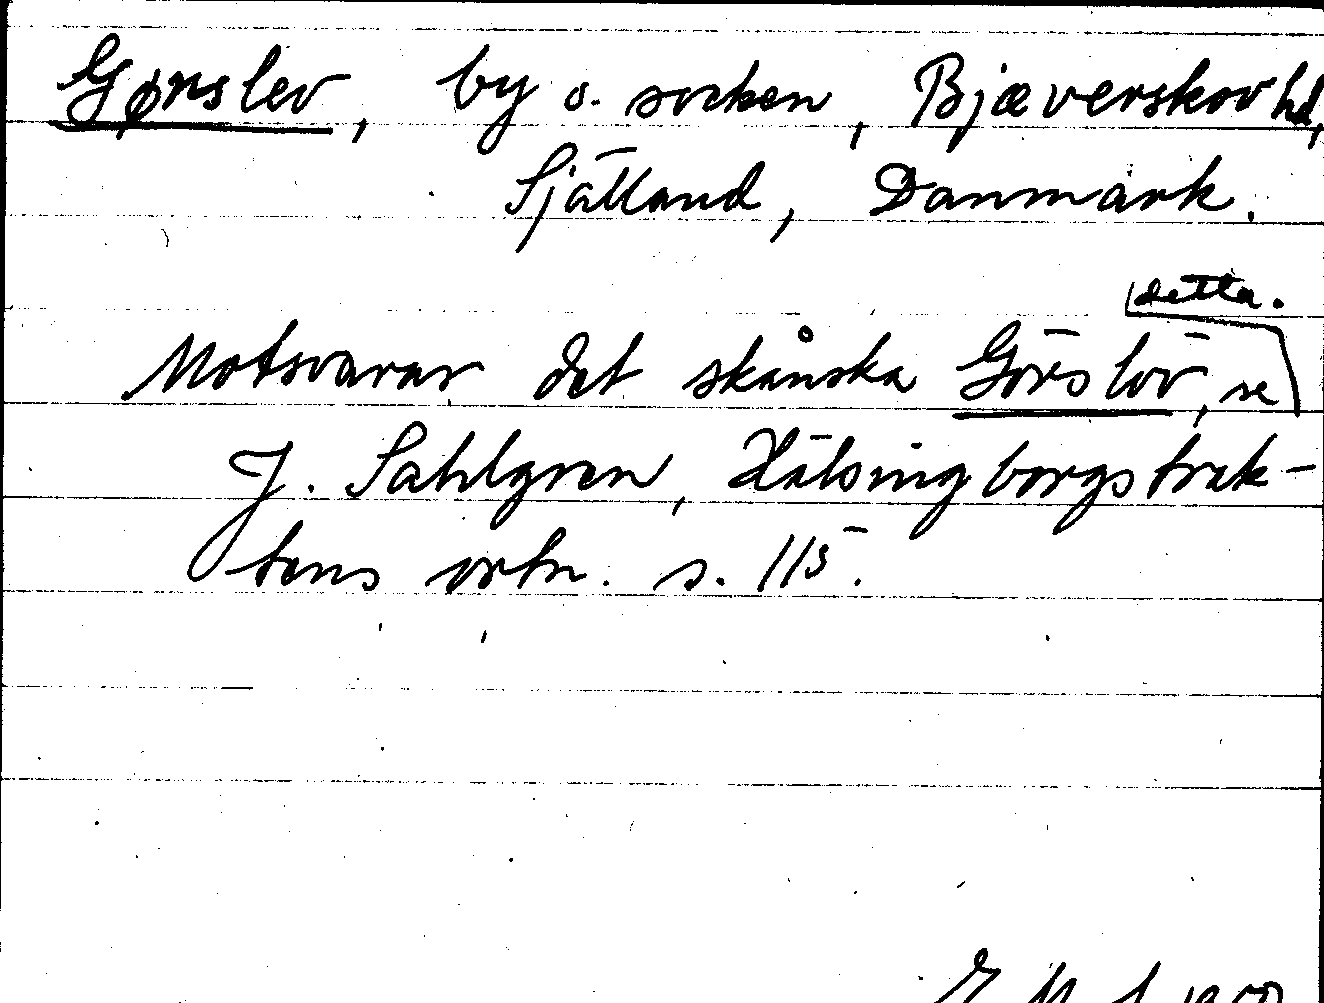 Gørslev, by o. socken, Bjæverskov hd,
Själland, Danmark.
Motsvarar det skånska Görslöv, se detta.
J. Sahlgren, Hälsingborgstrak-
tens ortn. s. 115.